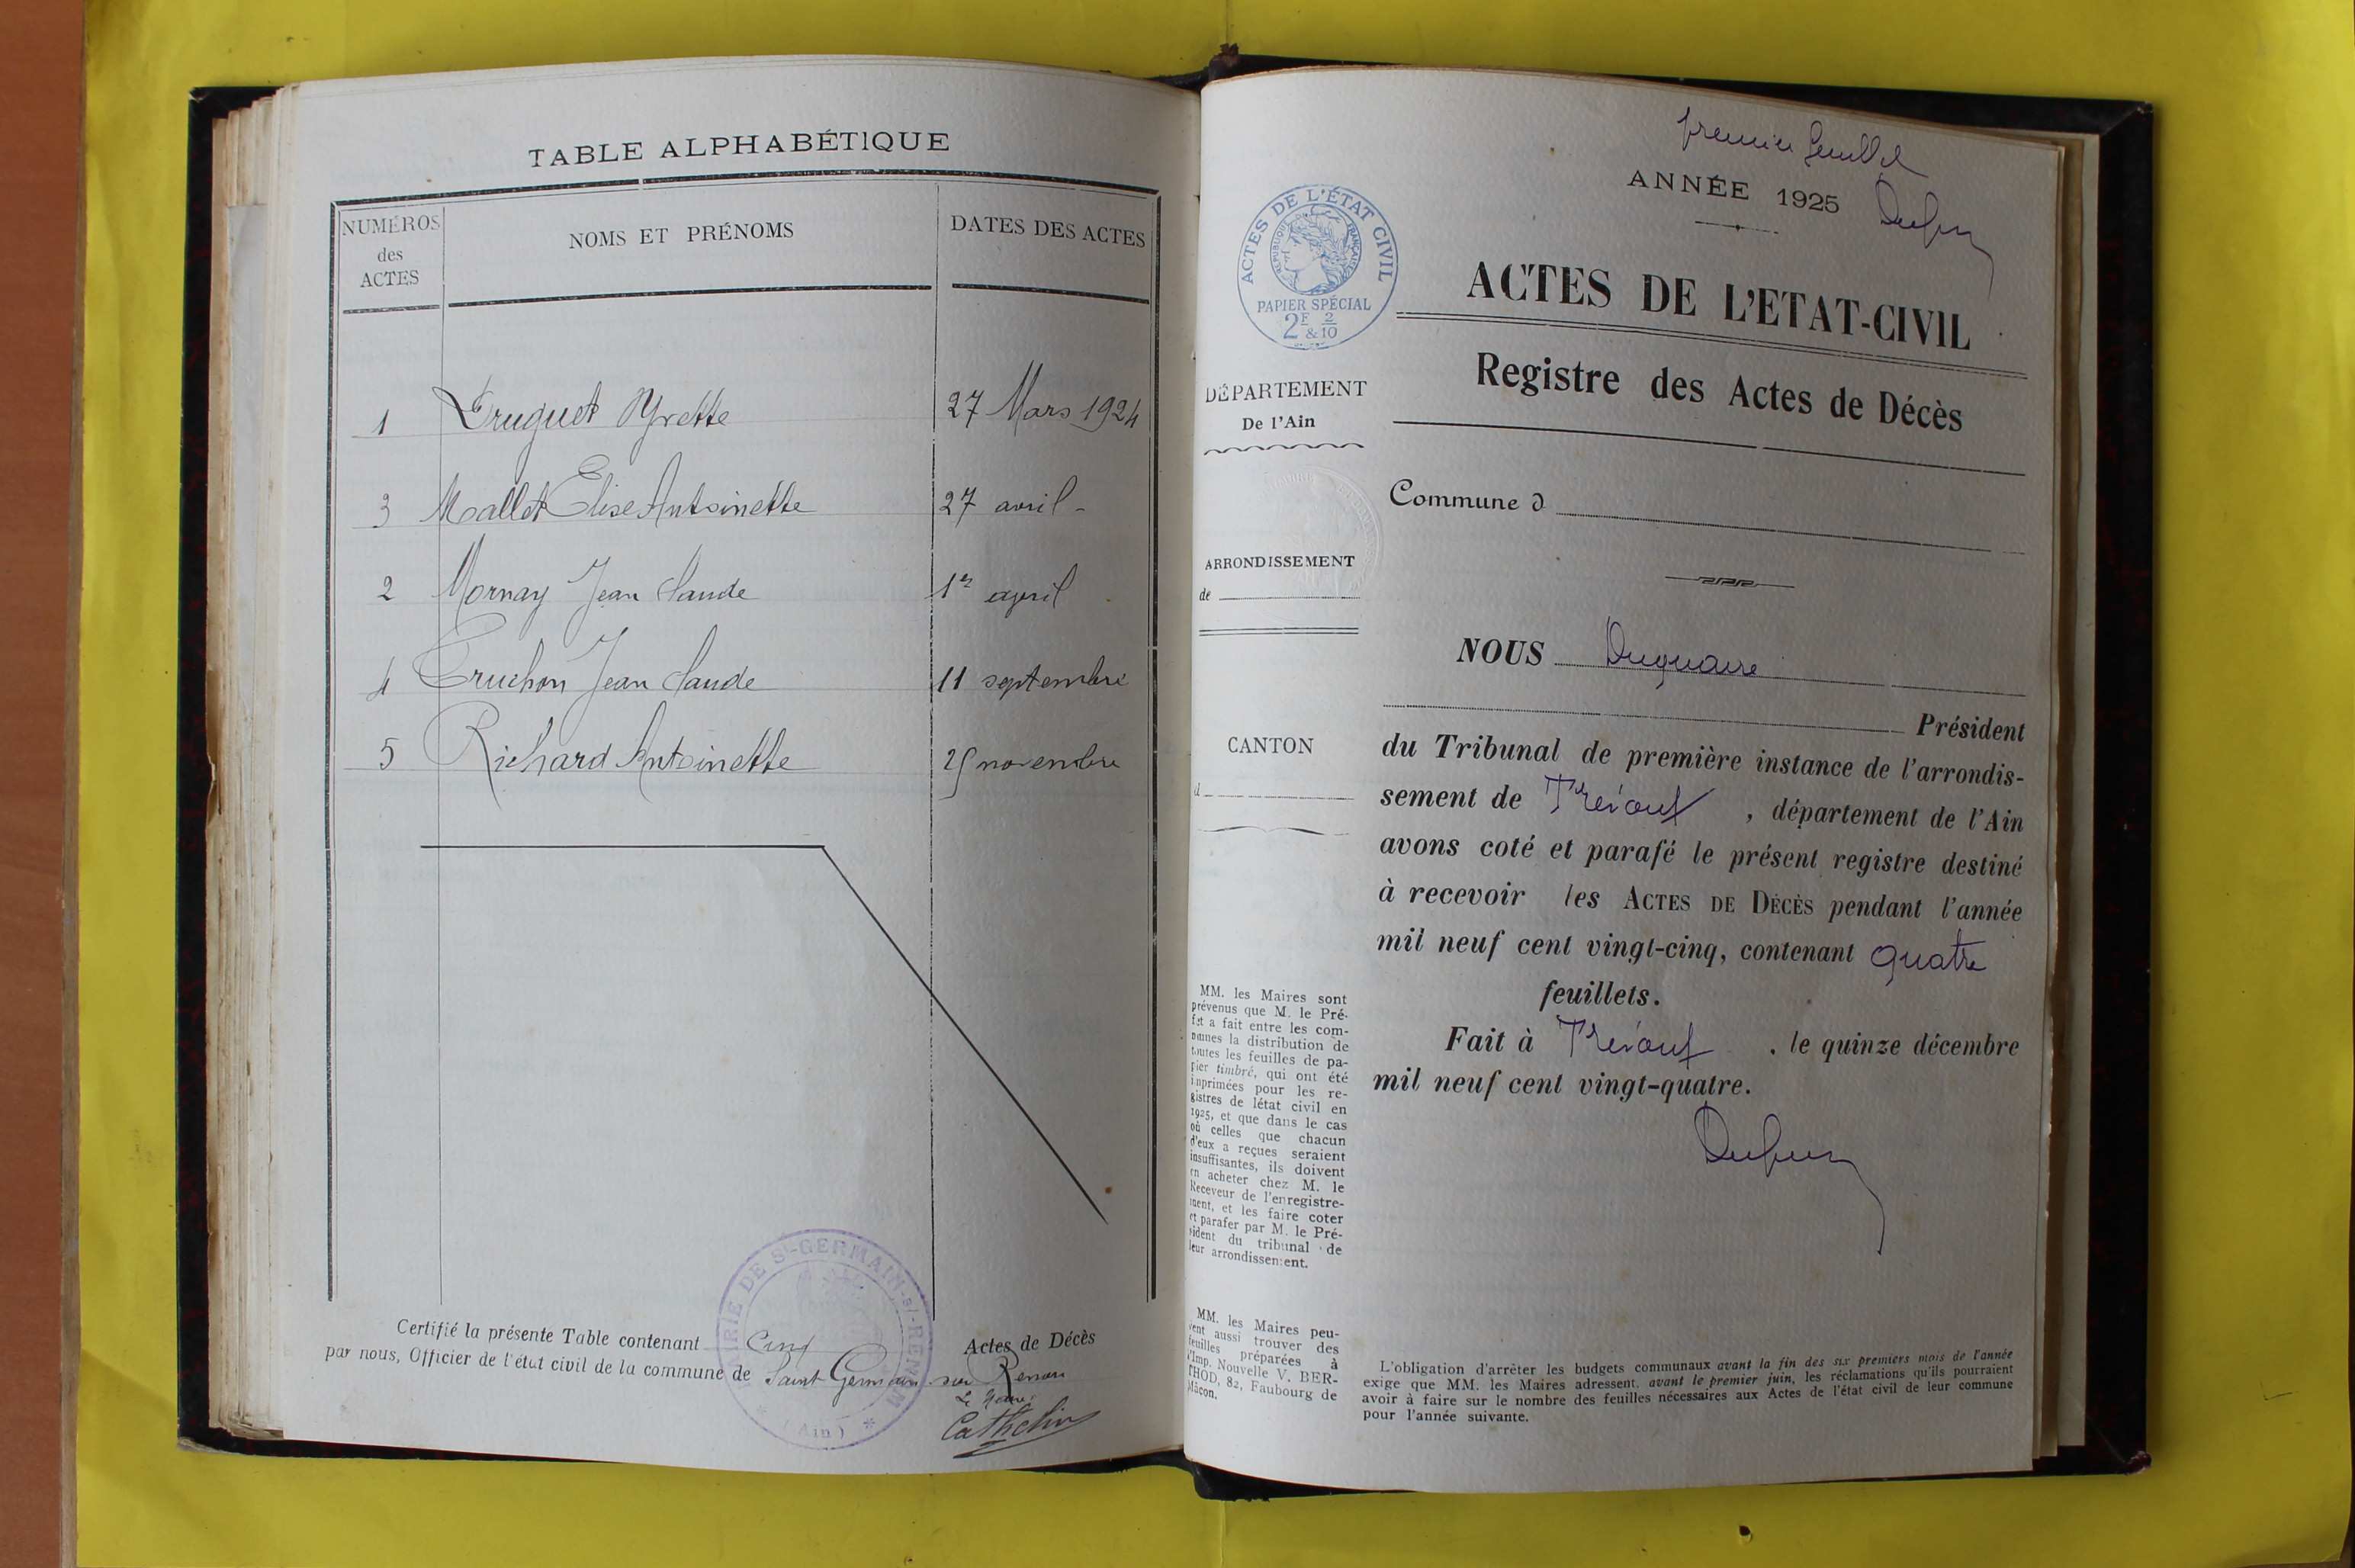 TABLE ALPHABÉTIQUE
NUMÉROS
des
ACTES
NOMS ET PRÉNOMS
DATES DES ACTES
1 Druguet Yvette 27 Mars 1924
3 Mallet Elise Antoinette 27 avril -
2 Mornay Jean Claude 1er avril
4 Truchon Jean Claude 11 septembre
5 Richard Antoinette 25 novembre
Certifié la présente Table contenant Cinq Actes de Décès
par nous, Officier de l'état civil de la commune de Saint Germain sur Renon
Le Maire
Cathelin
MAIRIE DE St-GERMAIN-s/-RENOM
* (Ain) *
premier feuillet
ANNÉE 1925
ACTES DE L'ÉTAT CIVIL
RÉPUBLIQUE FRANÇAISE
PAPIER SPÉCIAL
2F & 2/10
ACTES DE L'ETAT-CIVIL
Registre des Actes de Décès
DÉPARTEMENT
De l'Ain
Commune d
ARRONDISSEMENT
de
CANTON
d
NOUS Duquaire
Président
du Tribunal de première instance de l'arrondis-
sement de Trévoux , département de l'Ain
avons coté et parafé le présent registre destiné
à recevoir les ACTES DE DÉCÈS pendant l'année
mil neuf cent vingt-cinq, contenant quatre
feuillets.
Fait à Trévoux , le quinze décembre
mil neuf cent vingt-quatre.
MM. les Maires sont
prévenus que M. le Pré-
fet a fait entre les com-
munes la distribution de
toutes les feuilles de pa-
pier timbré, qui ont été
imprimées pour les re-
gistres de létat civil en
1925, et que dans le cas
où celles que chacun
d'eux a reçues seraient
insuffisantes, ils doivent
en acheter chez M. le
Receveur de l'enregistre-
ment, et les faire coter
et parafer par M. le Pré-
sident du tribunal de
leur arrondissement.
MM. les Maires peu-
vent aussi trouver des
feuilles préparées à
l'Imp. Nouvelle V. BER-
THOD, 82, Faubourg de
Mâcon.
L'obligation d'arrêter les budgets communaux avant la fin des six premiers mois de l'année
exige que MM. les Maires adressent, avant le premier juin, les réclamations qu'ils pourraient
avoir à faire sur le nombre des feuilles nécessaires aux Actes de l'état civil de leur commune
pour l'année suivante.